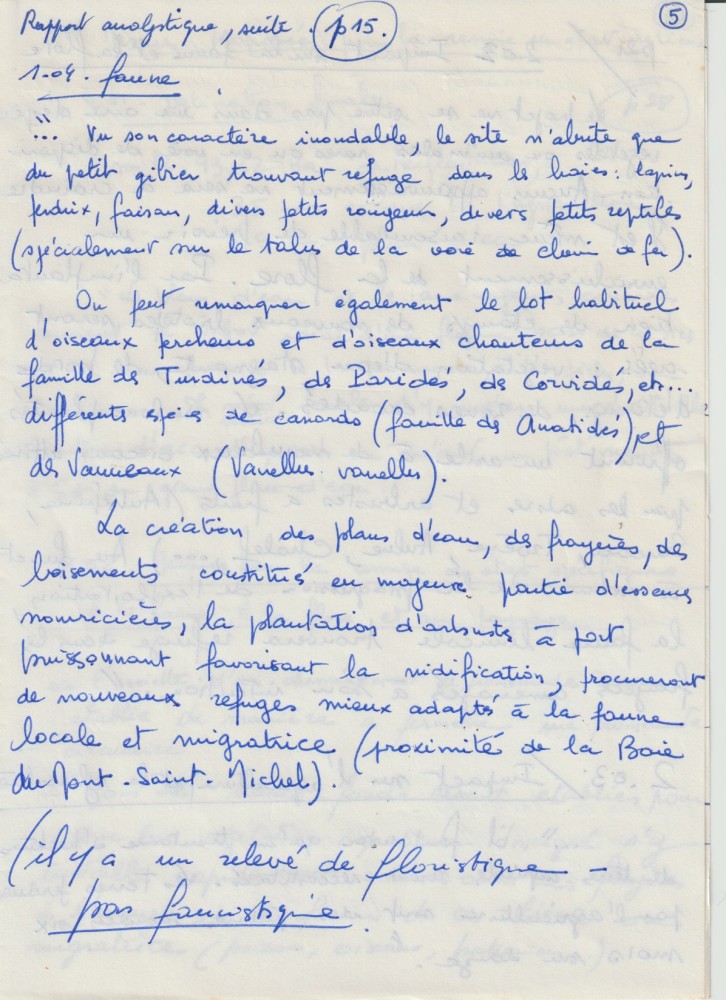 Rapport analytique, suite. p15.
5
1-04. faune
... Vu son caractère inondable, le site n'abrite que
du petit gibier trouvant refuge dans les haies : lapins,
perdrix, faisan, divers petits rongeurs, divers petits reptiles
(spécialement sur le talus de la voie de chemin de fer).
On peut remarquer également le lot habituel
d'oiseaux percheurs et d'oiseaux chanteurs de la
famille des Turdinés, des Paridés, des Corvidés, etc...
différents espèces de canards (famille des Anatidés), et
des Vanneaux (Vanellus vanellus).
La création des plans d'eau, des frayères, des
boisements constitués en majeure partie d'essences
nourricières, la plantation d'arbustes à port
buissonnant favorisant la nidification, procureront
de nouveaux refuges mieux adaptés à la faune
locale et migratrice (proximité de la Baie
du Mont-Saint-Michel).
(il y a un relevé de floristique -
pas faunistique.